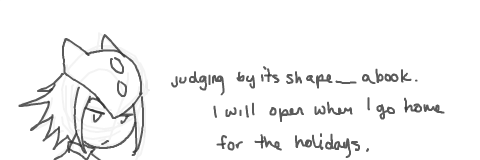 judging by its shape__ a book.
I will open when I go home
for the holidays.